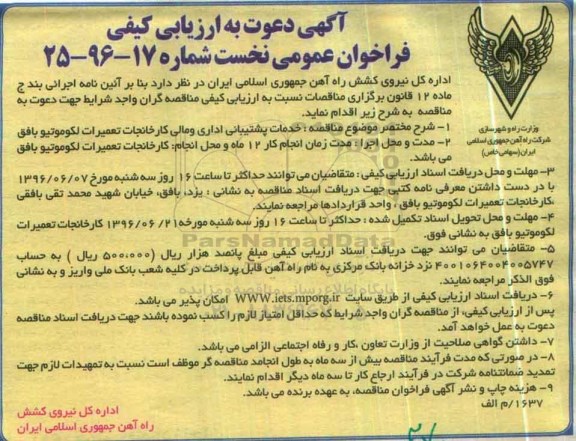 آگهی دعوت به ارزیابی کیفی
فراخوان عمومی نخست شماره ۱۷-۹۶-۲۵
وزارت راه و شهرسازی
شرکت راه آهن جمهوری اسلامی
ایران (سهامی خاص)
اداره کل نیروی کشش راه آهن جمهوری اسلامی ایران در نظر دارد بنا بر آئین نامه اجرائی بند ج
ماده ۱۲ قانون برگزاری مناقصات نسبت به ارزیابی کیفی مناقصه گران واجد شرایط جهت دعوت به
مناقصه به شرح زیر اقدام نماید.
۱- شرح مختصر موضوع مناقصه : خدمات پشتیبانی اداری ومالی کارخانجات تعمیرات لکوموتیو بافق
۲- مدت و محل اجرا: مدت زمان انجام کار ۱۲ ماه و محل انجام: کارخانجات تعمیرات لکوموتیو بافق
می باشد.
۳- مهلت و محل دریافت اسناد ارزیابی کیفی : متقاضیان می توانند حداکثر تا ساعت ۱۶ روز سه شنبه مورخ ۱۳۹۶/۰۶/۰۷
با در دست داشتن معرفی نامه کتبی جهت دریافت اسناد مناقصه به نشانی : یزد، بافق، خیابان شهید محمد تقی بافقی
،کارخانجات تعمیرات لکوموتیو بافق ، واحد قراردادها مراجعه نمایند.
۴- مهلت و محل تحویل اسناد تکمیل شده : حداکثر تا ساعت ۱۶ روز سه شنبه مورخه ۱۳۹۶/۰۶/۲۱ کارخانجات تعمیرات
لکوموتیو بافق به نشانی فوق.
۵- متقاضیان می توانند جهت دریافت اسناد ارزیابی کیفی مبلغ پانصد هزار ریال (۵۰۰،۰۰۰ ریال ) به حساب
۴۰۰۱۰۶۴۰۰۴۰۰۵۷۴۷ نزد خزانه بانک مرکزی به نام راه آهن قابل پرداخت در کلیه شعب بانک ملی واریز و به نشانی
فوق الذکر مراجعه نمایند.
۶- دریافت اسناد ارزیابی کیفی از طریق سایت www.iets.mporg.ir امکان پذیر می باشد.
پس از ارزیابی کیفی، از مناقصه گران واجد شرایط که حداقل امتیاز لازم را کسب نموده باشند جهت دریافت اسناد مناقصه
دعوت به عمل خواهد آمد.
۷- داشتن گواهی صلاحیت از وزارت تعاون ،کار و رفاه اجتماعی الزامی می باشد.
۸- در صورتی که مدت فرآیند مناقصه بیش از سه ماه به طول انجامد مناقصه گر موظف است نسبت به تمهیدات لازم جهت
تمدید ضمانتنامه شرکت در فرآیند ارجاع کار تا سه ماه دیگر اقدام نمایند.
۹- هزینه چاپ و نشر آگهی فراخوان مناقصه، به عهده برنده می باشد.
۱۶۳۷/م الف
اداره کل نیروی کشش
راه آهن جمهوری اسلامی ایران
ParsNamadData